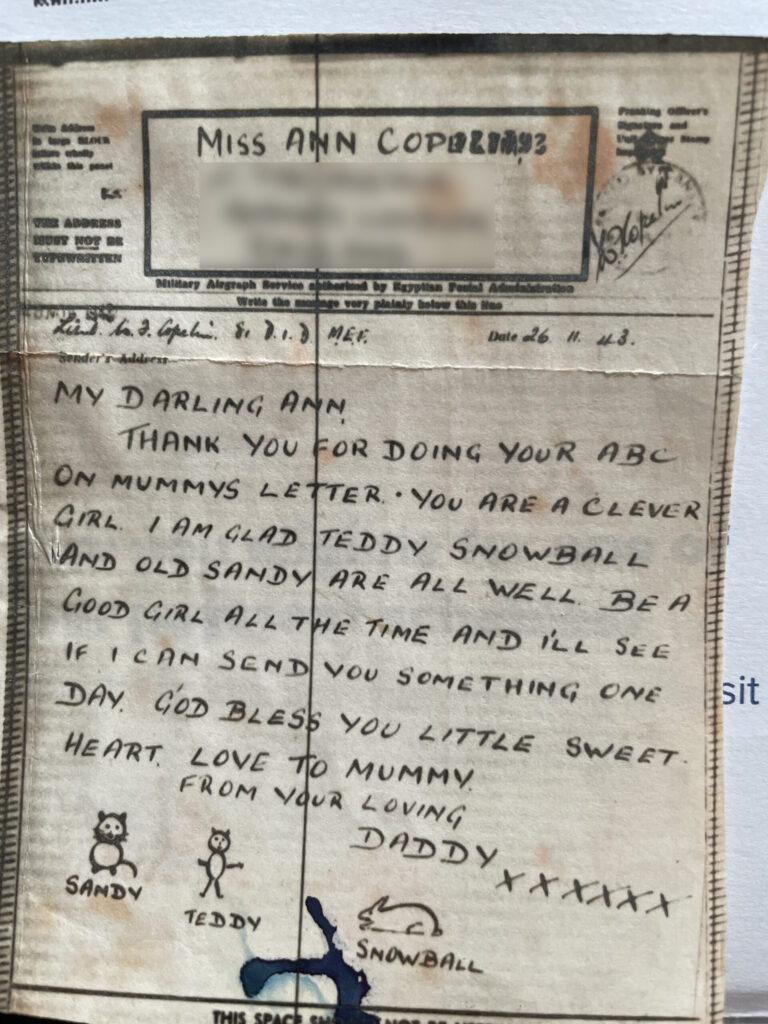 MISS ANN
Write Address
in large BLOCK
letters wholly
within this panel
THE ADDRESS
MUST NOT BE
TYPEWRITTEN
Franking Officer's
Signature and
Military Airgraph Service authorised by Egyptian Postal Administration
Write the message very plainly below this line
M.E.F.
Date 26 11. 43.
Sender's Address
MY DARLING ANN,
THANK YOU FOR DOING YOUR ABC
ON MUMMYS LETTER. YOU ARE A CLEVER
GIRL. I AM GLAD TEDDY SNOWBALL
AND OLD SANDY ARE ALL WELL. BE A
GOOD GIRL ALL THE TIME AND I'LL SEE
IF I CAN SEND YOU SOMETHING ONE
DAY. GOD BLESS YOU LITTLE SWEET.
HEART. LOVE TO MUMMY.
FROM YOUR LOVING
DADDY
XXXXXX
SANDY
TEDDY
SNOWBALL
THIS SPACE
sit